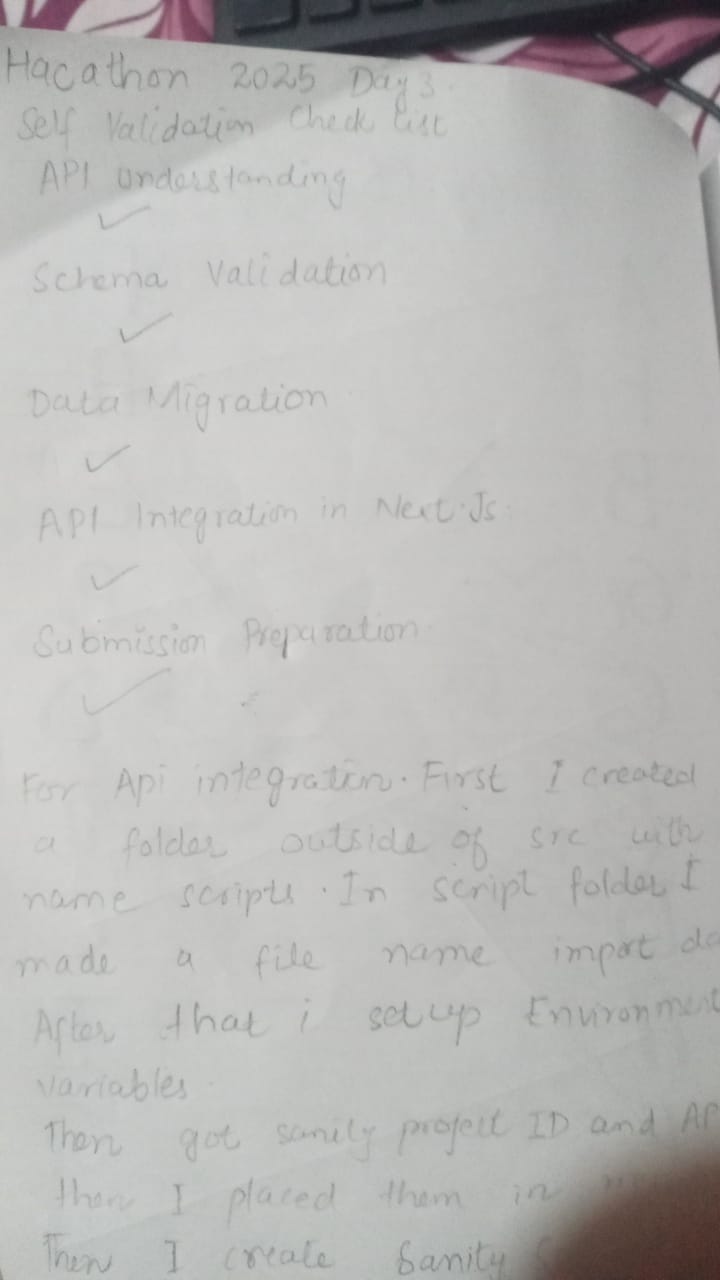 Hacathon 2025 Day 3.
Self Validation Check list
API Understanding
Schema Validation
Data Migration
API Integration in Next.Js.
Submission Preparation.
For Api integration. First I created
a folder outside of src with
name scripts. In script folder I
made a file name import
After that i setup Environment
variables.
Then got sanity project ID and
then I placed them in
Then I create Sanity